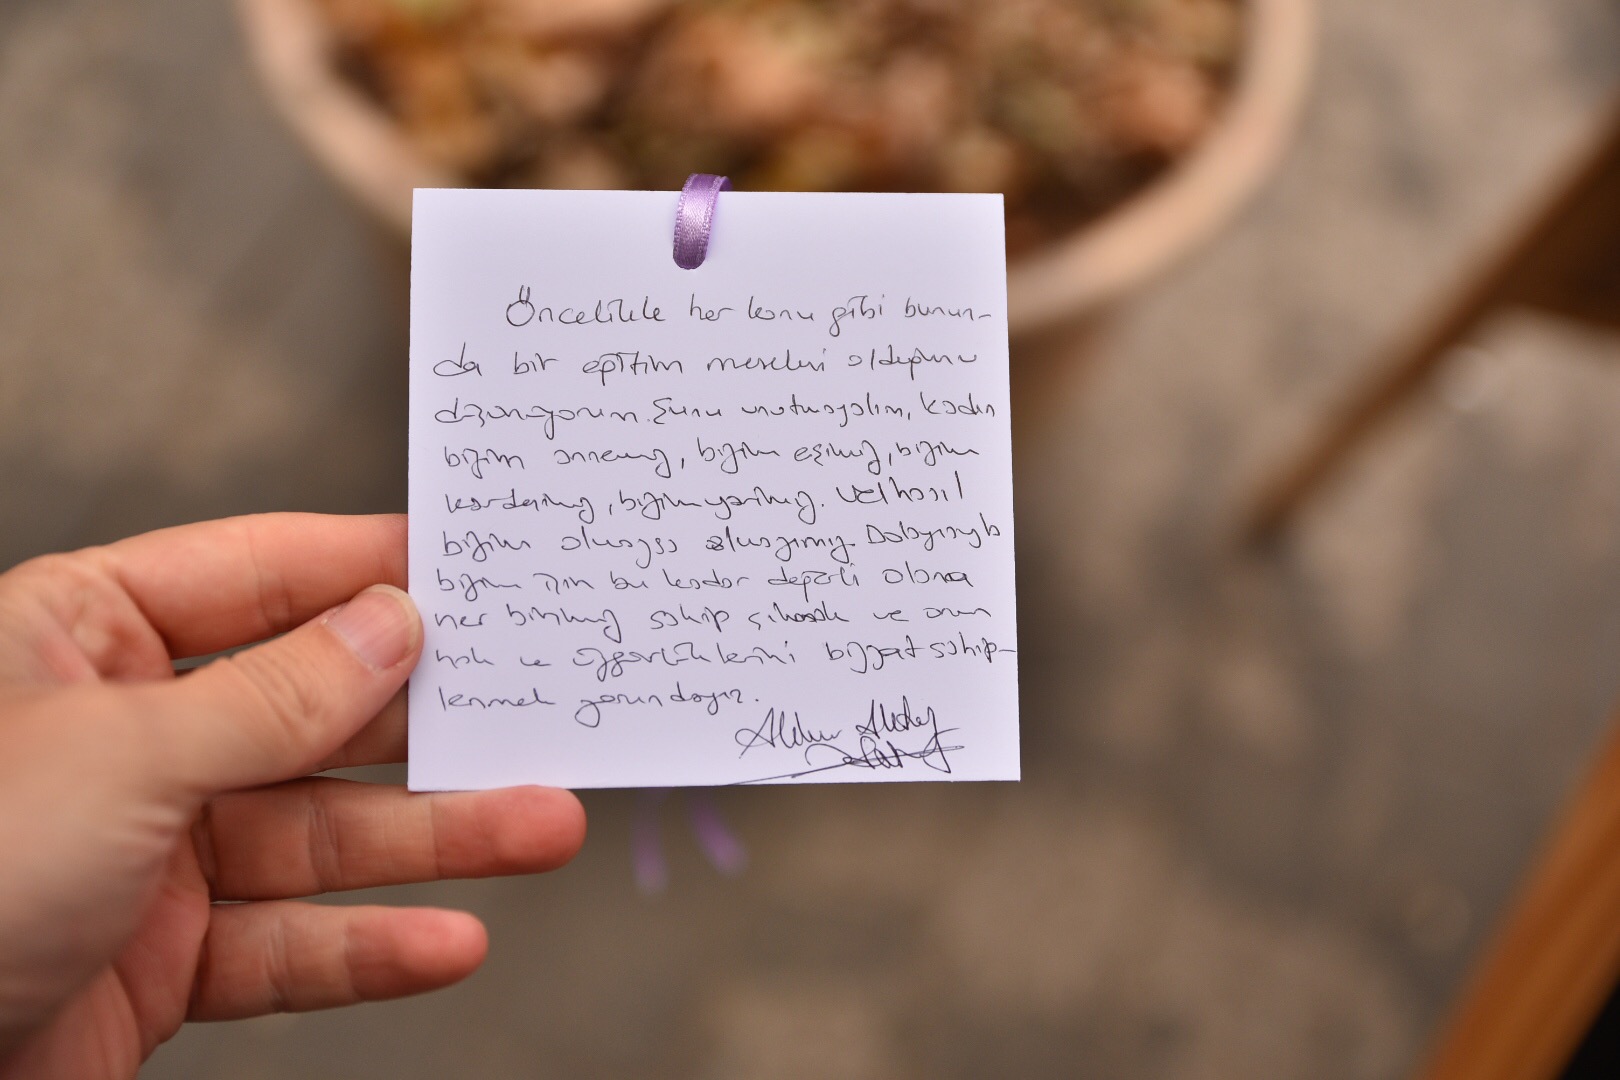 Öncelikle her konu gibi bunun-
da bir eğitim meselesi olduğunu
düşünüyorum. Şunu unutmayalım, kadın
bizim annemiz, bizim eşimiz, bizim
kardeşimiz, bizim yarimiz. Velhasıl
bizim olmazsa olmazımız. Dolayısıyla
bizim için bu kadar değerli olana
her birimiz sahip çıkmak ve onun
hak ve özgürlüklerini bizzat sahip-
lenmek zorundayız.